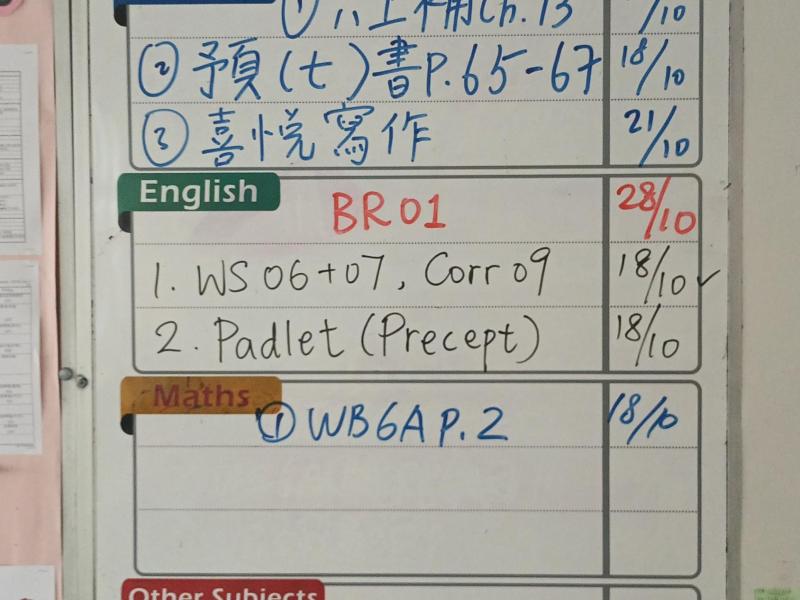 ① 六上補Ch.13 /10
② 預(七)書P.65-67 18/10
③ 喜悅寫作 21/10
English
BR01 28/10
1. WS 06+07, Corr 09 18/10 ✓
2. Padlet (Precept) 18/10
Maths
① WB6A P.2 18/10
Other Subjects